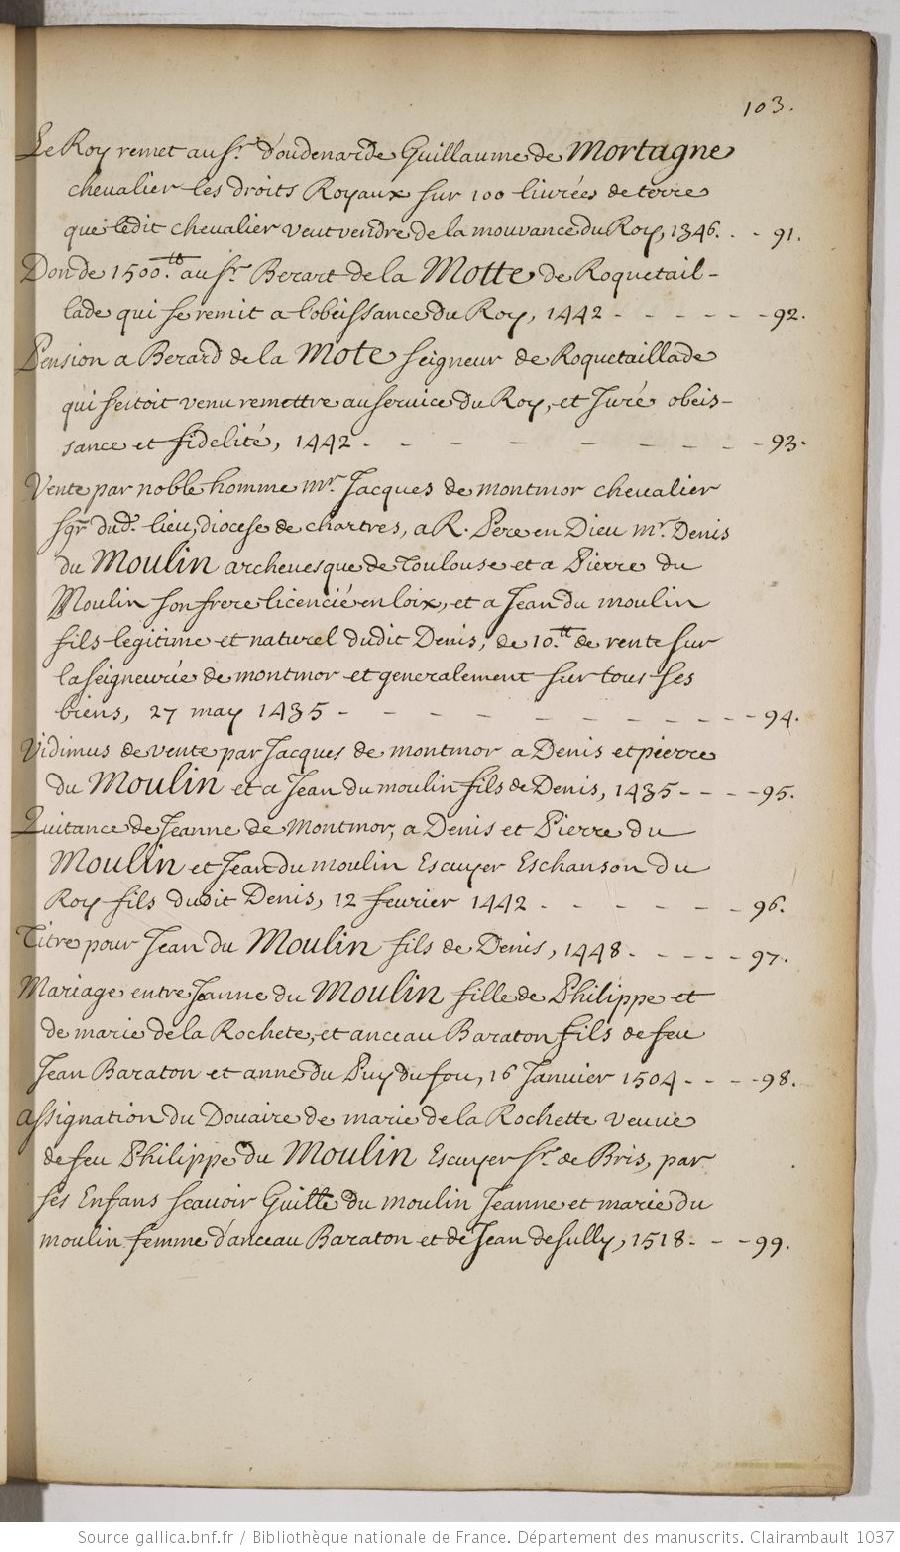 103.
Le Roy remet au sr. d'oudenarde Guillaume de Mortagne
chevalier les droits Royaux sur 100 livrées de terre
que ledit chevalier veut vendre de la mouvance du Roy, 1346. - - 91.
Don de 1500.tt au sr. Berart de la Motte de Roquetail-
lade qui se remit a l'obeissance du Roy, 1442 - - - - - - 92.
Pension a Berard de la Mote seigneur de Roquetaillade
qui s'estoit venu remettre au service du Roy, et Juré obeis-
sance et fidelité, 1442 - - - - - - - - - 93.
Vente par noble homme mr. Jacques de montmor chevalier
sgr. dud. lieu, diocese de chartres, a R. Pere en Dieu mr. Denis
du Moulin archevesque de Toulouse et a Pierre du
Moulin son frere licencié en loix, et a Jean du moulin
fils legitime et naturel dudit Denis, de 10.tt de rente sur
la seigneurie de montmor et generalement sur tous ses
biens, 27 may 1435 - - - - - - - - - - 94.
Vidimus de vente par Jacques de montmor a Denis et pierre
du Moulin et a Jean du moulin fils de Denis, 1435 - - - - 95.
Quitance de Jeanne de Montmor, a Denis et Pierre du
Moulin et Jean du moulin Escuyer Eschanson du
Roy fils dudit Denis, 12 fevrier 1442 - - - - - - 96.
Titre pour Jean du Moulin fils de Denis, 1448 - - - - - 97.
Mariage entre Jeanne du Moulin fille de Philippe et
de marie de la Rochete, et anceau Baraton fils de feu
Jean Baraton et anne du Puy du fou, 16 Janvier 1504 - - - - 98.
assignation du Douaire de marie de la Rochette veuve
de feu Philippe du Moulin Escuyer sr. de Bris, par
ses Enfans scavoir Guille du moulin Jeanne et marie du
moulin femme d'anceau Baraton et de Jean de sully, 1518 - - - 99.
Source gallica.bnf.fr / Bibliothèque nationale de France. Département des manuscrits. Clairambault 1037